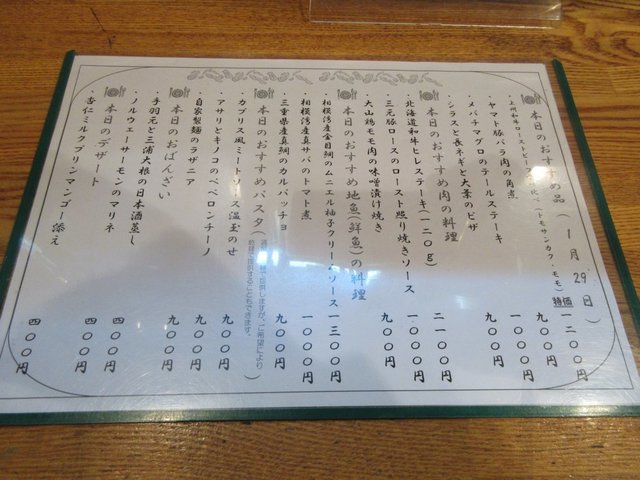 本日のおすすめ品(1月29日)
・上州和牛ローストビーフ(トモサンカク・モモ)特価 一二〇〇円
・ヤマト豚バラ肉の角煮 九〇〇円
・メバチマグロのテールステーキ 一〇〇〇円
・シラスと長ネギと大葉のピザ 九〇〇円
本日のおすすめ肉の料理
・北海道和牛ヒレステーキ(一二〇g) 二一〇〇円
・三元豚ロースのロースト照り焼きソース 一〇〇〇円
・大山鶏モモ肉の味噌漬け焼き 九〇〇円
本日のおすすめ地魚(鮮魚)の料理
・相模湾産金目鯛のムニエル柚子クリームソース 一三〇〇円
・相模湾産真サバのトマト煮 一〇〇〇円
・三重県産真鯛のカルパッチョ 九〇〇円
本日のおすすめパスタ(
で提供しますが、ご希望により
乾麺で提供することもできます。)
・カプリス風ミートソース温玉のせ 九〇〇円
・アサリとキノコのペペロンチーノ 九〇〇円
・自家製麺のラザニア 九〇〇円
本日のおばんざい
・手羽元と三浦大根の日本酒蒸し 四〇〇円
・ノルウェーサーモンのマリネ 四〇〇円
本日のデザート
・杏仁ミルクプリンマンゴー添え 四〇〇円